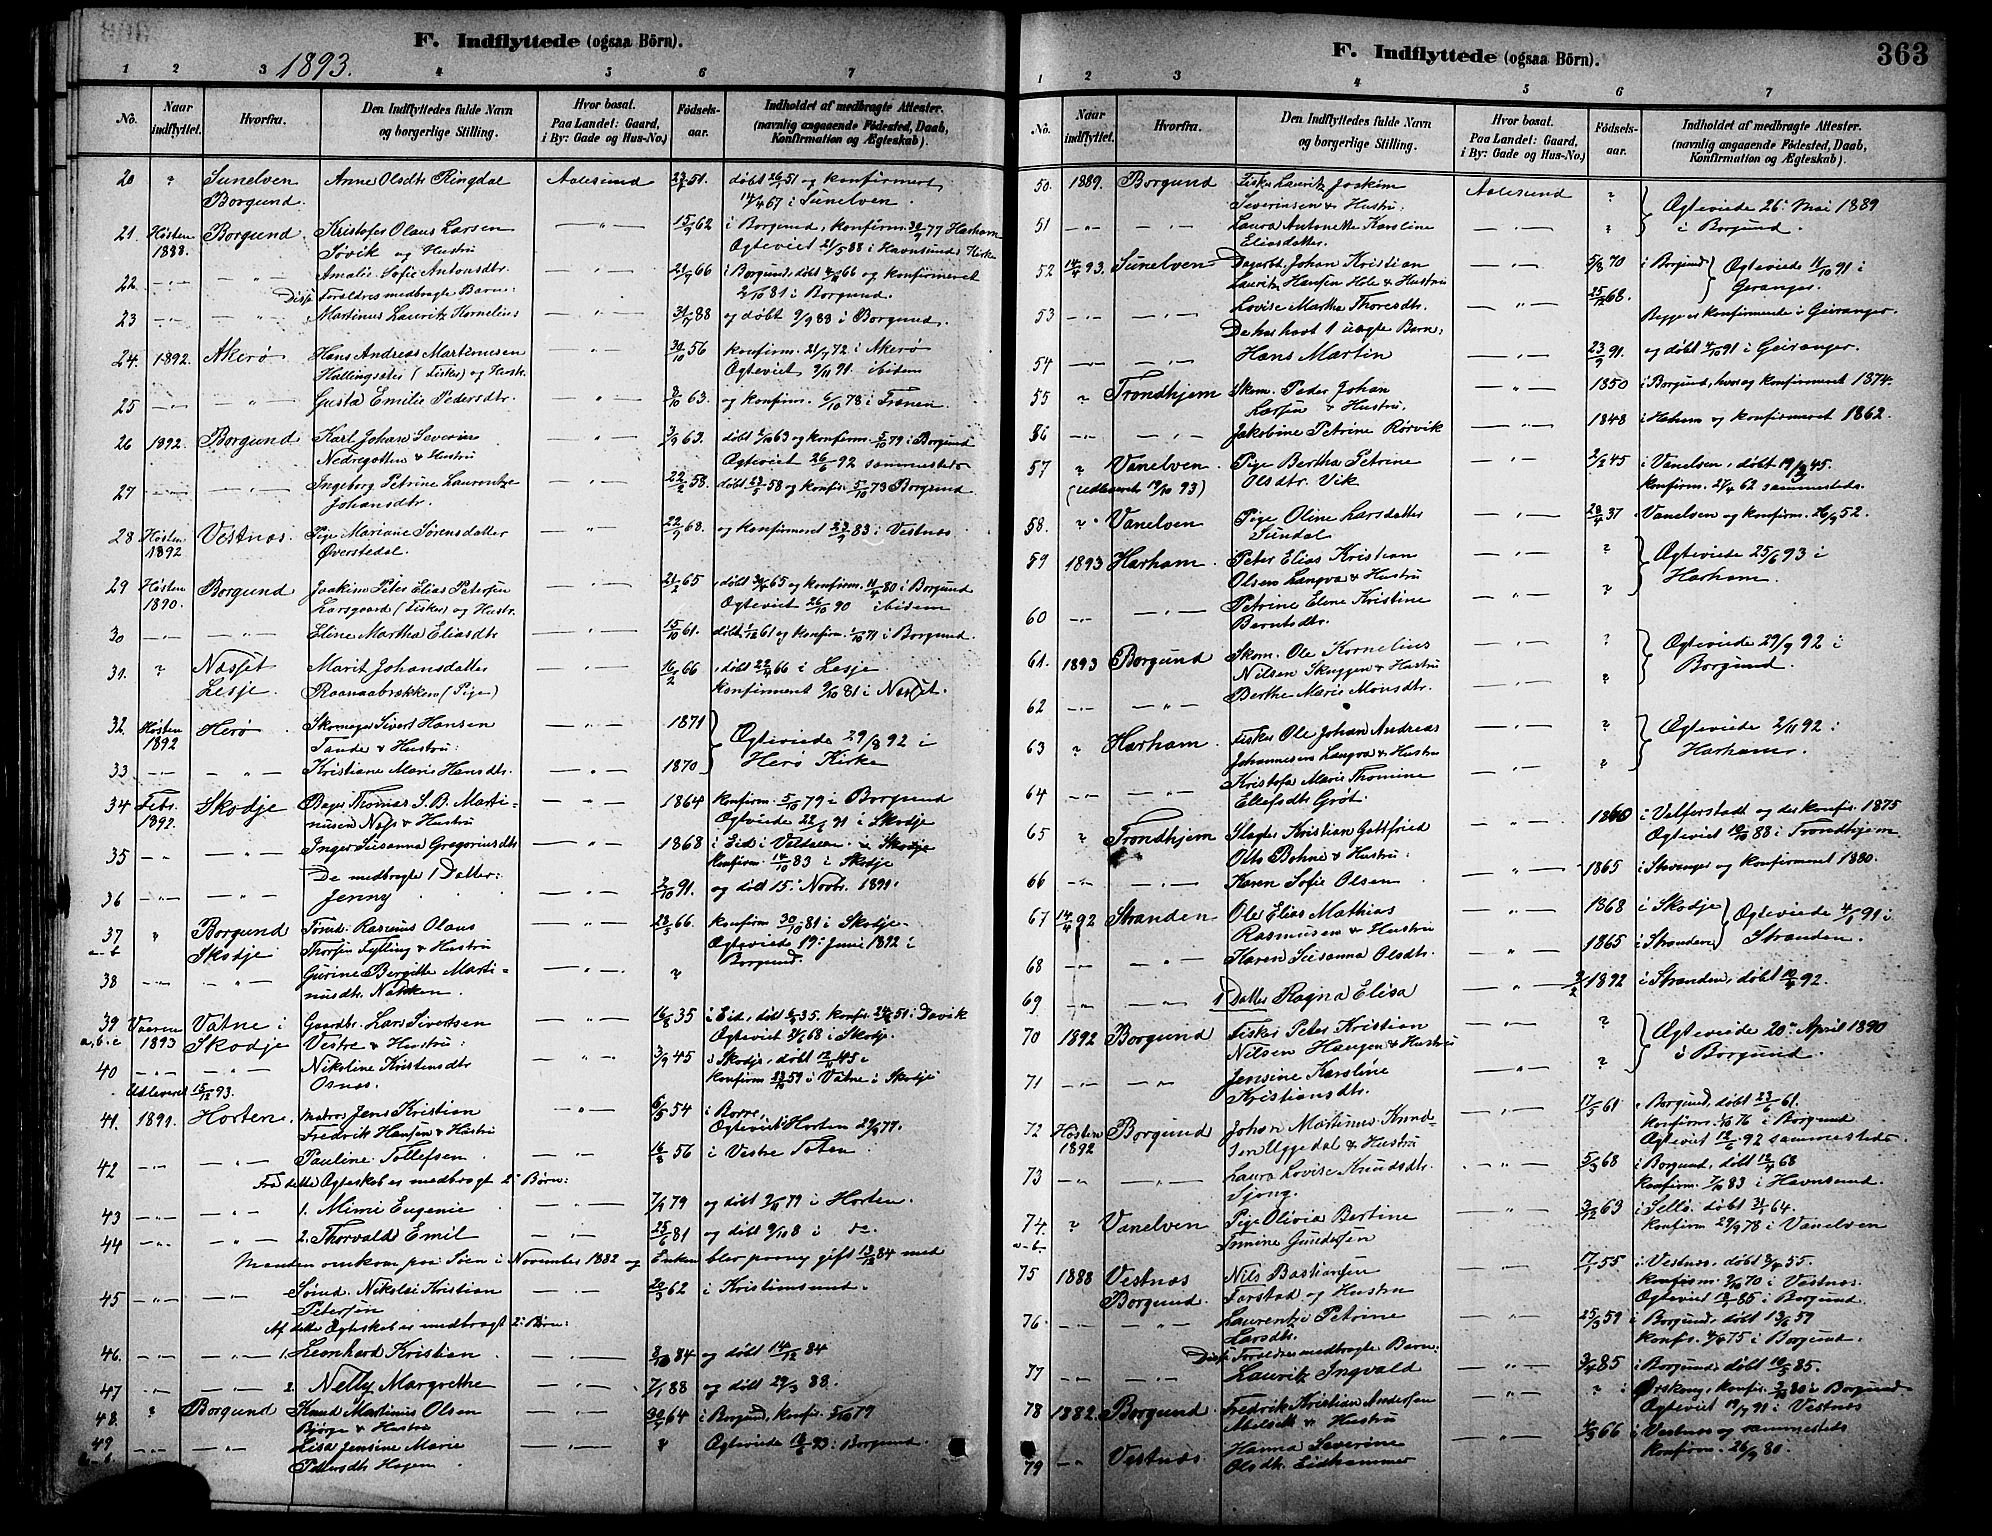 F. Indflyttede (ogsaa Börn).
1893.
1 2 3 4 5 6 7
No. Naar indflyttet. Hvorfra. Den Indflyttedes fulde Navn og borgerlige Stilling. Hvor bosat. Paa Landet: Gaard, i By: Gade og Hus-No.) Fødsels-aar. Indholdet af medbragte Attester. (navnlig angaaende Födested, Daab, Konfirmation og Ægteskab).
20 " Sunelven Anne Olsdtr Ringdal Aalesund 23/2 51. døbt 26/5 51 og konfirmeret
Borgund. 14/4 67 i Sunelven.
21. Høsten Borgund Kristofer Olaus Larsen — " — 15/9 62 i Borgund, konfirm. 30/9 77 Harham
1888. Søvik og Hustru Ægteviet 21/5 88 i Havnsunds Kirke
22 — " — — " — Amalie Sofie Antonsdtr. — " — 21/9 66 i Borgund, døbt 4/11 66 og konfirmeret
Disse Forældres medbragte Barn: 2/10 81 i Borgund.
23 — " — — " — Martinus Lauritz Kornelius — " — 31/7 88 og døbt 9/9 88 i Borgund.
24. 1892. Akerø Hans Andreas Martinusen — " — 30/10 56 konfirm. 21/7 72 i Akerø
Hallingsæter (Fisker) og Hustr. Ægteviet 7/11 91. ibidem
25 — " — — " — Gusta Emilie Pedersdtr. — " — 3/10 63. og konfirm. 6/10 78 i Frænen.
26 1892. Borgund Karl Johan Severin — " — 3/9 63. døbt 4/10 63 og konfirm. 5/10 79 i Borgund
Nedregotten & Hustru Ægteviet 26/6 92 sammesteds
27 — " — — " — Ingeborg Petrine Laurentze — " — 22/2 58. døbt 23/5 58 og konfir. 5/10 73 Borgund
Johansdtr.
28 Høsten Vestnæs. Pige Mariane Sørensdatter — " — 22/9 68. og konfirmeret 23/9 83 i Vestnæs
1892 Øverstedal.
29 Høsten Borgund Joakim Peter Elias Petersen — " — 21/2 65 døbt 30/4 65 og konfirm. 11/4 80 i Borgund
1890. Larsgaard (Fisker) og Hustr. Ægteviet 26/10 90 ibidem
30 — " — — " — Eline Martha Eliasdtr — " — 15/10 61. døbt 1/12 61 og konfirm. 1/10 77 i Borgund.
31. " Næsset Marit Johansdatter — " — 16/2 66 døbt 22/4 66 i Lesje
Lesje. Raanaabrækken (Pige) konfirmeret 9/10 81 i Næsset.
32. Høsten Herø Skomager Sivert Hansen — " — 1871 Ægteviede 29/8 92 i
1892 Tande & Hustru: Herø Kirke
33 — " — — " — Kristiane Marie Hansdtr. — " — 1870
34 Febr. Skodje Bager Thomas S. B. Marti- — " — 1864 konfirm. 5/10 79 i Borgund
1892. nusen Næss & Hustru Ægteviede 22/2 91 i Skodje
35 — " — — " — Inger Susanna Gregoriusdtr — " — 1868 i Eid i Veldalen. Skodje
De medbragte 1 Datter: konfirm. 14/10 83 i Skodje
36 — " — — " — Jenny — " — 2/10 91. og døbt 15. Novbr. 1891.
37 " Borgund Tømd. Rasmus Olaus — " — 23/3 66 konfirm 30/10 81 i Skodje.
a-b Skodje Thorsen Fylling & Hustru Ægteviede 19. Juni 1892 i
38 — " — — " — Gurine Bergitte Marti- — " — " Borgund.
nusdtr. Nakken.
39 Vaaren Vatne i Gaardbr. Lars Sivertsen — " — 16/8 35 i Eid, døbt 35. konfir. 51. i Davik
a, b-c 1893 Skodje Vestre & Hustru: Ægteviet 21/6 68 i Skodje.
40 — " — — " — Nikoline Kristensdtr — " — 3/9 45 i Skodje, døbt 12/11 45 i
Osnæs. konfirm 23/10 59 i Vatne i Skodje
Udleveret 15/12 93.
41. 1891. Horten. Matros Jens Kristian — " — 6/5 54 i Borre,
Fredrik Hansen & Hustru Ægteviet i Horten 77.
42 — " — — " — Pauline Tollefsen — " — 16/8 56 i Vestre Toten.
Fra dette Ægteskab er medbragt 2 Børn:
43 — " — — " — 1. Mimi Eugenie — " — 7/9 79 og døbt 9/11 79 i Horten.
44 — " — — " — 2. Thorvald Emil — " — 25/6 81 og døbt 9/10 8 i do
Manden omkom paa Søen i November 1882 og Enken blev paany gift 13/12 84 med
45 — " — — " — Sømd. Nikolai Kristian — " — 20/3 62 i Kristiansund.
Petersen
Af dette Ægteskab er medbragt 2 Børn:
46. — " — — " — 1. Leonhard Kristian — " — 8/10 84 og døbt 14/12 84
47 — " — — " — 2. Nelly Margrethe — " — 7/1 88 og døbt 29/3 88.
48. " Borgund Knud Martinus Olsen — " — 30/7 64 i Borgund, konfir. 5/10 79
Bjørge & Hustru
49 — " — — " — Lisa Jensine Marie — " — " Ægteviede 18/6 93 i Borgund.
Pettersdtr Hagen
F. Indflyttede (ogsaa Börn).
363
1 2 3 4 5 6 7
No. Naar indflyttet. Hvorfra. Den Indflyttedes fulde Navn og borgerlige Stilling. Hvor bosat. Paa Landet: Gaard, i By: Gade og Hus-No.) Fødsels-aar. Indholdet af medbragte Attester. (navnlig angaaende Födested, Daab, Konfirmation og Ægteskab).
50. 1889. Borgund Fisker Lauritz Joakim Aalesund " Ægteviede 26. Mai 1889
Severinsen & Hustru i Borgund.
51 — " — — " — Laura Antonette Karoline — " — "
Eliasdatter.
52 14/4 93. Sunelven Dagarbd. Johan Kristian — " — 5/8 70 i Borgund Ægteviede 11/10 91 i
Lauritz Hansen Hole & Hustru Geranger.
53 — " — — " — Lovise Martha Thoresdtr. — " — 25/12 68. Begge er konfirmerede i Geiranger.
De har havt 1 uægte Barn:
54 — " — Hans Martin — " — 23/9 91. og døbt 4/10 91 i Geiranger.
55 " Trondhjem Skom. Peder Johan — " — 1850 i Borgund, hvor og konfirmeret 1874.
Larsen & Hustru,
56 — " — — " — Jakobine Petrine Rørvik — " — 1848 i Haham og konfirmeret 1862.
57 " Vanelven Pige Bertha Petrine — " — 2/2 45 i Vanelven, døbt 19/3 45.
(Udleveret 19/10 93) Olsdtr. Vik konfirm. 27/4 62 sammesteds.
58. " Vanelven Pige Oline Larsdatter — " — 28/4 37 Vanelven og konfirm. 26/9 52.
Sundal
59 1893 Harham. Peter Elias Kristian — " — " Ægteviede 25/6 93 i
Olsen Langva & Hustru Harham.
60 — " — — " — Petrine Elene Kristine — " — "
Berntsdtr.
61. 1893 Borgund Skom. Ole Kornelius — " — " Ægteviede 29/9 92 i
Nilsen Skuggen & Hustru Borgund.
62 — " — — " — Berthe Marie Monsdtr. — " — "
63 " Harham. Fisker Ole Johan Andreas — " — " Ægteviede 2/11 92 i
Johannesen Langva & Hustru Harham.
64 — " — — " — Kristofa Marie Thomine — " — "
Ellefsdtr Grøt.
65 " Trondhjem Slagter Kristian Gottfried — " — 1860 i Valferstadt og der konfir. 1875
Otto Bohne & Hustru: Ægteviet 10/10 88 i Trondhjem
66 — " — — " — Karen Sofie Olsen — " — 1865 i Stavanger og konfirmeret 1880.
67 14/4 92 Stranden Ole Elias Mathias — " — 1868 i Skodje Ægteviede 4/1 91 i
Rasmusen & Hustru Stranden.
68 — " — — " — Karen Susanna Olsdtr. — " — 1865 i Stranden
69 — " — — " — 1 Datter Ragna Elisa — " — 3/2 1892 i Stranden, døbt 92.
70 1892 Borgund Fisker Peter Kristian — " — " Ægteviede 20de April 1890
Nilsen Haugen & Hustru i Borgund.
71 — " — — " — Jensine Karoline — " — "
Kristiansdtr.
72 Høsten Borgund Johan Martinus Knud- — " — 17/5 61 i Borgund, døbt 23/6 61.
1892 sen Uggedal & Hustru konfirm. 1/10 76 i Borgund
Ægteviet 12/6 92 sammesteds.
73 — " — — " — Laura Lovise Knudsdtr. — " — 5/3 68 i Borgund, døbt 12/4 68
Sjong. konfirm. 7/10 83 i Havnsund.
74. " Vanelven Pige Olivia Bertine — " — 3/12 63 i Sellø, døbt 3/1 64.
a-b- Tomine Gundersen konfirm 29/9 78 i Vanelven
75 1888 Vestnæs Nils Bastiansen — " — 17/1 55 i Vestnæs, døbt 8/4 55.
Borgund. Farstad og Hustru konfir. 2/10 70 i Vestnæs.
Ægteviet 85 i Borgund.
76. — " — — " — Laurentze Petrine — " — 25/3 59 i Borgund, døbt 13/6 59
Larsdtr. konfir. 75 i Borgund.
Disse Forældres medbragte Barn:
77 — " — — " — Lauritz Ingvald — " — 3/4 85 i Borgund, døbt 10/5 85.
78 1882. Borgund. Fredrik Kristian Andersen — " — " i Ørskoug, konfir. 3/10 80 i Borgund.
Abelset & Hustru Ægteviet 19/7 91 i Vestnæs
79 — " — Vestnæs. Hanna Severine — " — 16/3 66 i Vestnæs og sammesteds
Olsdtr. Eidhammer konfirm. 26/9 80.